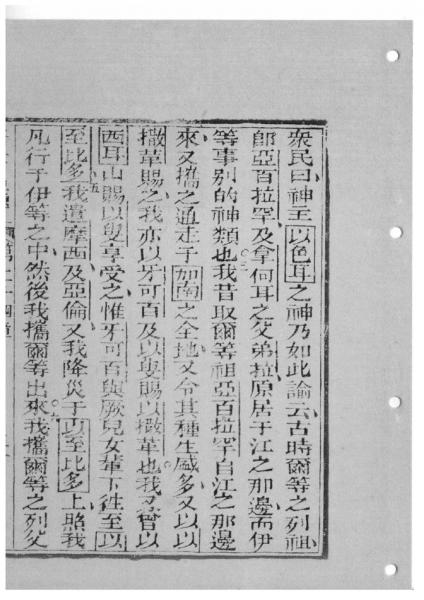 衆民曰神主以色耳之神乃如此諭云古時爾等之列祖
郎亞百拉罕及拿何耳之父弟拉原居于江之那邊而伊
等事别的神類也我昔取爾等祖亞百拉罕自江之那邊
來又攜之通走于加南之全地又令其種生盛多又以以
撒革賜之我亦以牙可百及以叟賜以撒革也我又曾以
西耳山賜以叟享受之惟牙可百與厥兒女輩下徃至以
至比多我遣摩西及亞倫又我降災于以至比多上照我
凡行于伊等之中然後我攜爾等出來我攜爾等之列父